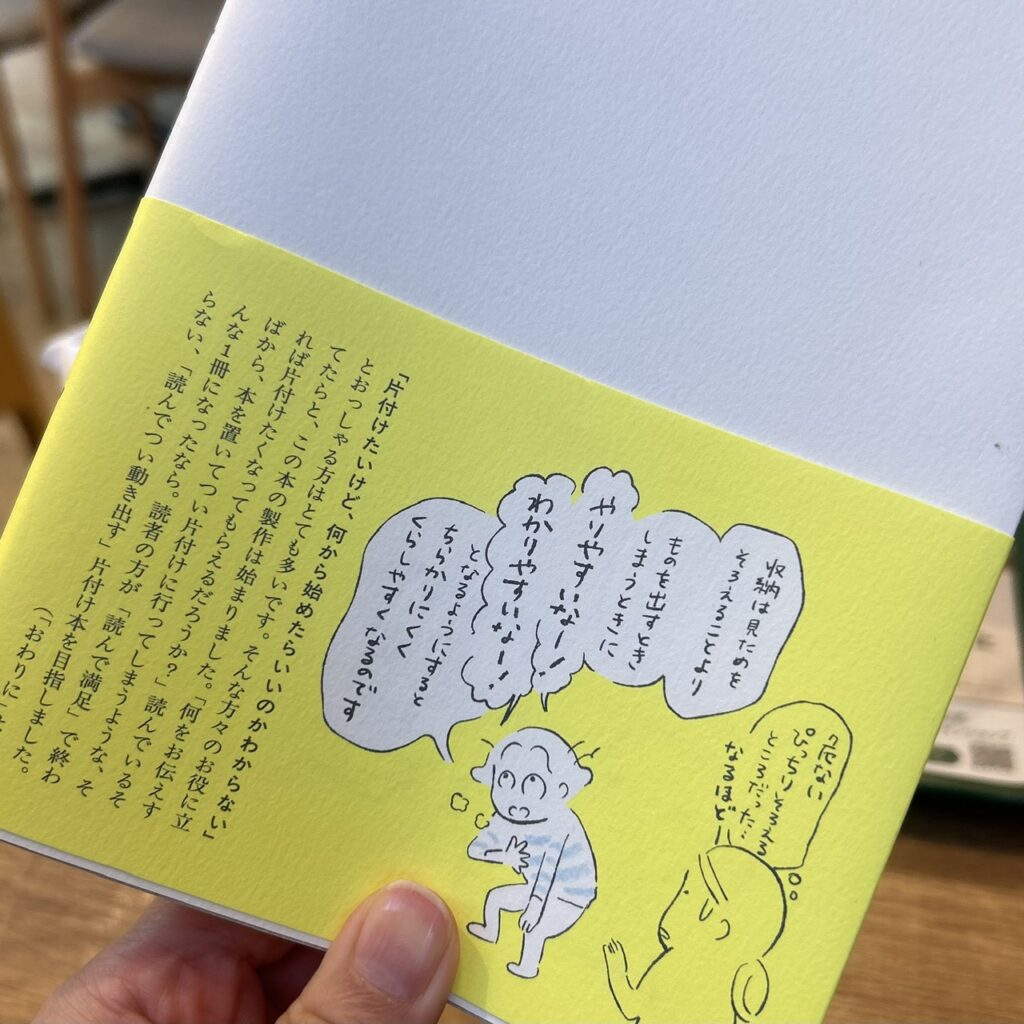 収納は見ためを
そろえることより
ものを出すとき
しまうときに
やりやすいなー!
わかりやすいなー!
となるようにすると
ちらかりにくく
くらしやすくなるのです
危ない
ぴっちりそろえる
ところだった…
なるほど
「片付けたいけど、何から始めたらいいのかわからない」
とおっしゃる方はとても多いです。そんな方々のお役に立
てたらと、この本の製作は始まりました。「何をお伝えす
れば片付けたくなってもらえるだろうか?」読んでいるそ
ばから、本を置いてつい片付けに行ってしまうような、そ
んな1冊になったなら。読者の方が「読んで満足」で終わ
らない、「読んでつい動き出す」片付け本を目指しました。
(「おわりに」